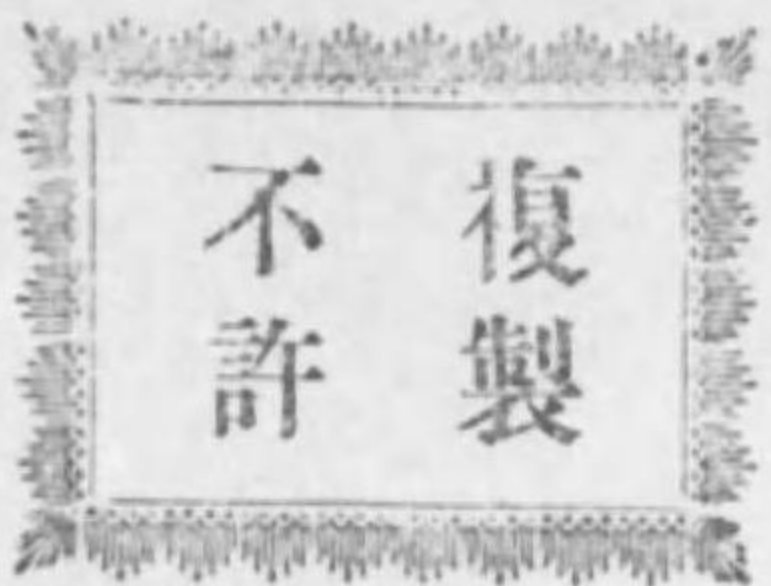 複製
不許